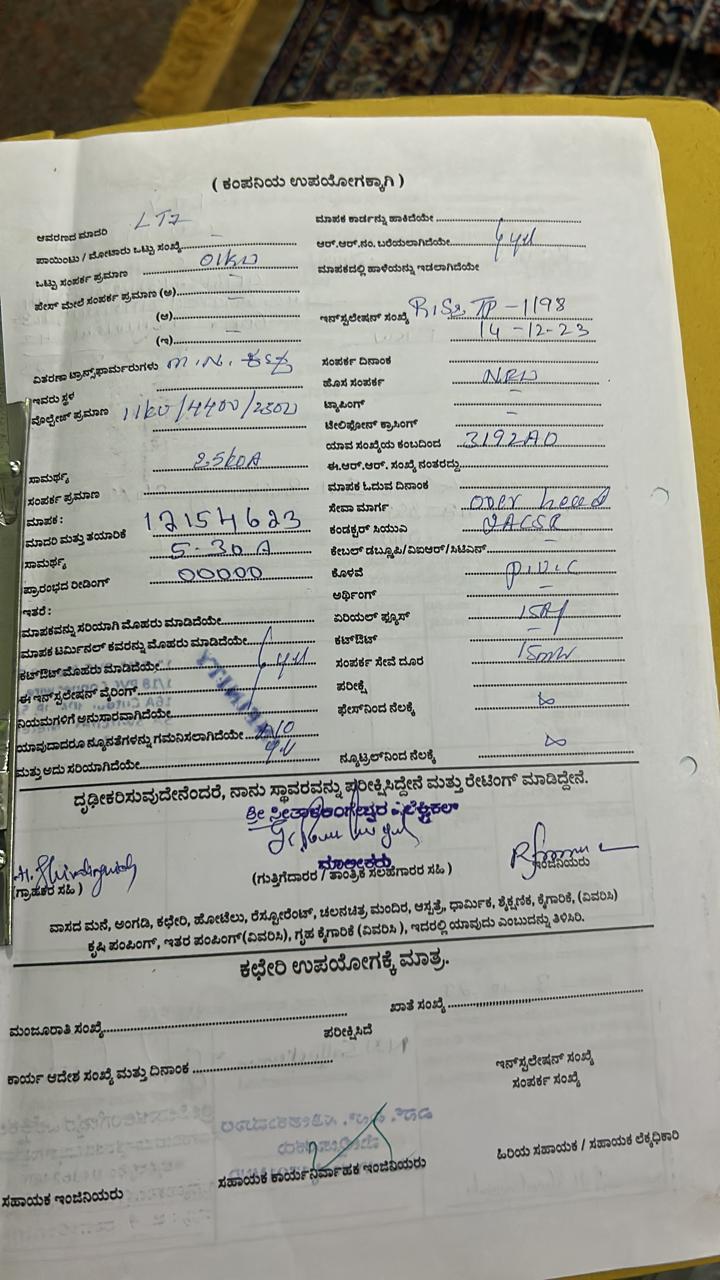 ( ಕಂಪನಿಯ ಉಪಯೋಗಕ್ಕಾಗಿ )
ಆವರಣದ ಮಾದರಿ LT7
ಪಾಯಿಂಟು / ಮೋಟಾರು ಒಟ್ಟು ಸಂಖ್ಯೆ –
ಒಟ್ಟು ಸಂಪರ್ಕ ಪ್ರಮಾಣ 01KW
ಫೇಸ್ ಮೇಲೆ ಸಂಪರ್ಕ ಪ್ರಮಾಣ (ಅ) –
(ಆ) –
(ಇ) –
ವಿತರಣಾ ಟ್ರಾನ್ಸ್‌ಫಾರ್ಮರುಗಳು M.N.
ಇವರು ಸ್ಥಳ
ವೊಲ್ಟೇಜ್ ಪ್ರಮಾಣ 11KV/440V/230V
ಸಾಮರ್ಥ್ಯ 25KVA
ಸಂಪರ್ಕ ಪ್ರಮಾಣ
ಮಾಪಕ :
ಮಾದರಿ ಮತ್ತು ತಯಾರಿಕೆ 12154623
ಸಾಮರ್ಥ್ಯ 5-30A
ಪ್ರಾರಂಭದ ರೀಡಿಂಗ್ 00000
ಇತರೆ :
ಮಾಪಕವನ್ನು ಸರಿಯಾಗಿ ಮೊಹರು ಮಾಡಿದೆಯೇ
ಮಾಪಕ ಟರ್ಮಿನಲ್ ಕವರನ್ನು ಮೊಹರು ಮಾಡಿದೆಯೇ
ಕಟ್‌ಔಟ್ ಮೊಹರು ಮಾಡಿದೆಯೇ
ಈ ಇನ್‌ಸ್ಟಲೇಷನ್ ವೈರಿಂಗ್
ನಿಯಮಗಳಿಗೆ ಅನುಸಾರವಾಗಿದೆಯೇ
ಯಾವುದಾದರೂ ನ್ಯೂನತೆಗಳನ್ನು ಗಮನಿಸಲಾಗಿದೆಯೇ NO
ಮತ್ತು ಅದು ಸರಿಯಾಗಿದೆಯೇ
ಮಾಪಕ ಕಾರ್ಡನ್ನು ಹಾಕಿದೆಯೇ
ಆರ್.ಆರ್.ನಂ. ಬರೆಯಲಾಗಿದೆಯೇ
ಮಾಪಕದಲ್ಲಿ ಹಾಳೆಯನ್ನು ಇಡಲಾಗಿದೆಯೇ
ಇನ್‌ಸ್ಟಲೇಷನ್ ಸಂಖ್ಯೆ TP-1198
14-12-23
ಸಂಪರ್ಕ ದಿನಾಂಕ
ಹೊಸ ಸಂಪರ್ಕ NEW
ಟ್ಯಾಪಿಂಗ್ –
ಟೆಲಿಫೋನ್ ಕ್ರಾಸಿಂಗ್ –
ಯಾವ ಸಂಖ್ಯೆಯ ಕಂಬದಿಂದ 3192AD
ಈ.ಆರ್.ಆರ್. ಸಂಖ್ಯೆ ನಂತರದ್ದು
ಮಾಪಕ ಓದುವ ದಿನಾಂಕ
ಸೇವಾ ಮಾರ್ಗ over head
ಕಂಡಕ್ಟರ್ ಸಿಯುಎ
ಕೇಬಲ್ ಡಬ್ಲೂಪಿ/ವಿಐಆರ್/ಸಿಟಿಎಸ್ –
ಕೊಳವೆ P.V.C
ಅರ್ಥಿಂಗ್ –
ಏರಿಯಲ್ ಫ್ಯೂಸ್
ಕಟ್‌ಔಟ್ –
ಸಂಪರ್ಕ ಸೇವೆ ದೂರ
ಪರೀಕ್ಷೆ
ಫೇಸ್‌ನಿಂದ ನೆಲಕ್ಕೆ ∞
ನ್ಯೂಟ್ರಲ್‌ನಿಂದ ನೆಲಕ್ಕೆ ∞
ದೃಢೀಕರಿಸುವುದೇನೆಂದರೆ, ನಾನು ಸ್ಥಾವರವನ್ನು ಪರೀಕ್ಷಿಸಿದ್ದೇನೆ ಮತ್ತು ರೇಟಿಂಗ್ ಮಾಡಿದ್ದೇನೆ.
ಮಾಲೀಕರು
(ಗ್ರಾಹಕರ ಸಹಿ )
(ಗುತ್ತಿಗೆದಾರರ / ತಾಂತ್ರಿಕ ಸಲಹೆಗಾರರ ಸಹಿ )
ಇಂಜಿನಿಯರು
ವಾಸದ ಮನೆ, ಅಂಗಡಿ, ಕಛೇರಿ, ಹೋಟೆಲು, ರೆಸ್ಟೋರೆಂಟ್, ಚಲನಚಿತ್ರ, ಮಂದಿರ, ಆಸ್ಪತ್ರೆ, ಧಾರ್ಮಿಕ, ಶೈಕ್ಷಣಿಕ, ಕೈಗಾರಿಕೆ, (ವಿವರಿಸಿ)
ಕೃಷಿ ಪಂಪಿಂಗ್, ಇತರ ಪಂಪಿಂಗ್ (ವಿವರಿಸಿ), ಗೃಹ ಕೈಗಾರಿಕೆ (ವಿವರಿಸಿ ), ಇದರಲ್ಲಿ ಯಾವುದು ಎಂಬುದನ್ನು ತಿಳಿಸಿರಿ.
ಕಛೇರಿ ಉಪಯೋಗಕ್ಕೆ ಮಾತ್ರ.
ಮಂಜೂರಾತಿ ಸಂಖ್ಯೆ
ಖಾತೆ ಸಂಖ್ಯೆ
ಪರೀಕ್ಷಿಸಿದೆ
ಕಾರ್ಯ ಆದೇಶ ಸಂಖ್ಯೆ ಮತ್ತು ದಿನಾಂಕ
ಇನ್‌ಸ್ಟಲೇಷನ್ ಸಂಖ್ಯೆ
ಸಂಪರ್ಕ ಸಂಖ್ಯೆ
ಸಹಾಯಕ ಇಂಜಿನಿಯರು
ಸಹಾಯಕ ಕಾರ್ಯನಿರ್ವಾಹಕ ಇಂಜಿನಿಯರು
ಹಿರಿಯ ಸಹಾಯಕ / ಸಹಾಯಕ ಲೆಕ್ಕಧಿಕಾರಿ